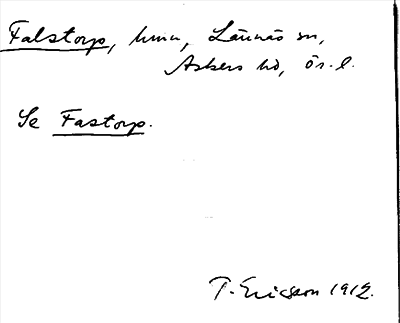 Falstorp, hmn, Lännäs sn,
Askers hd, ör. l.
Se Fastorp.
T. Ericsson 1912.